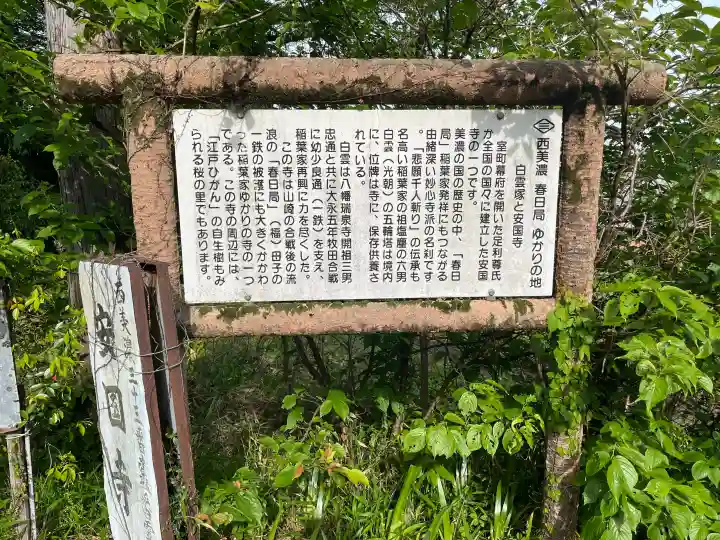 西美濃 春日局 ゆかりの地
白雲塚と安国寺
室町幕府を開いた足利尊氏
が全国の国々に建立した安国
寺の一つです。
美濃の国の歴史の中、「春日
局」稲葉家発祥にもつながる
由緒深い妙心寺派の名刹です
。「悲願千人斬り」の伝承も
名高い稲葉家の祖塩塵の六男
白雲(光朝)の五輪塔は境内
に、位牌は寺に、保存供養さ
れている。
白雲は八幡瑞泉寺開祖三男
忠通と共に大永五年牧田合戦
に幼少良通(一鉄)を支え、
稲葉家再興に力を尽くした。
この寺は山崎の合戦後の流
浪の「春日局」(福)母子の
一鉄の被護にも大きくかかわ
った稲葉家ゆかりの寺の一つ
である。この寺の周辺には、
「江戸ひがん」の自生樹もみ
られる桜の里でもあります。
西美濃三十三
安国寺